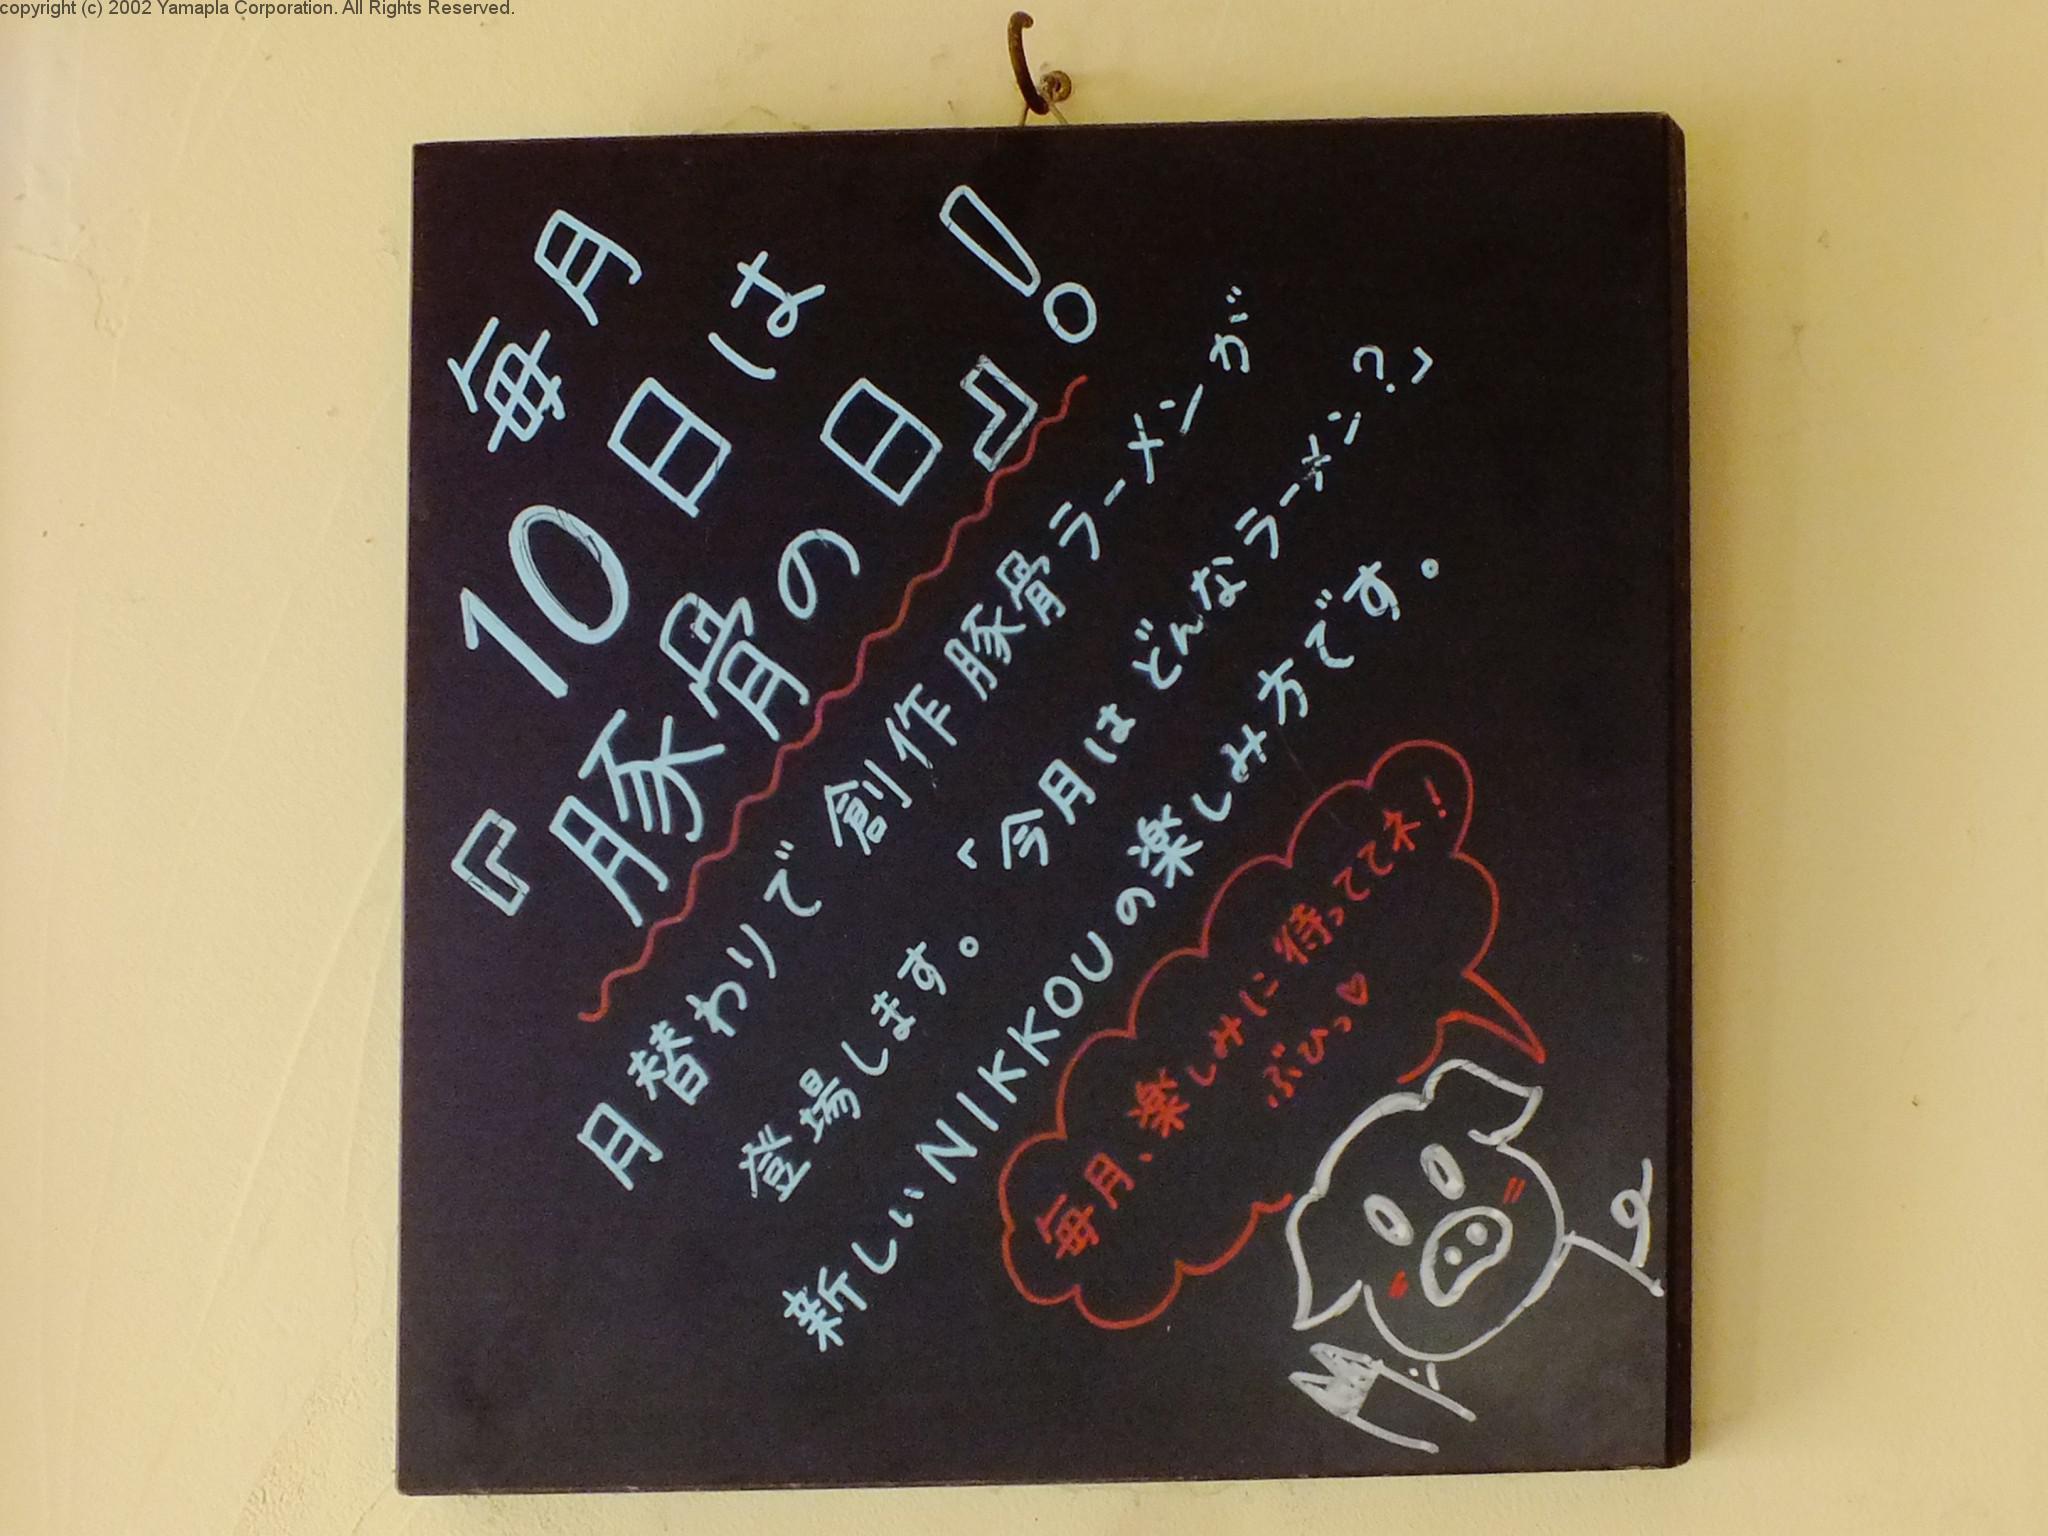 copyright (c) 2002 Yamapla Corporation. All Rights Reserved.
毎月
10日は
『豚骨の日』!。
月替わりで創作豚骨ラーメンが
登場します。「今月はどんなラーメン?」
新しいNIKKOUの楽しみ方です。
毎月、楽しみに待っててネ!
ぶひっ♡